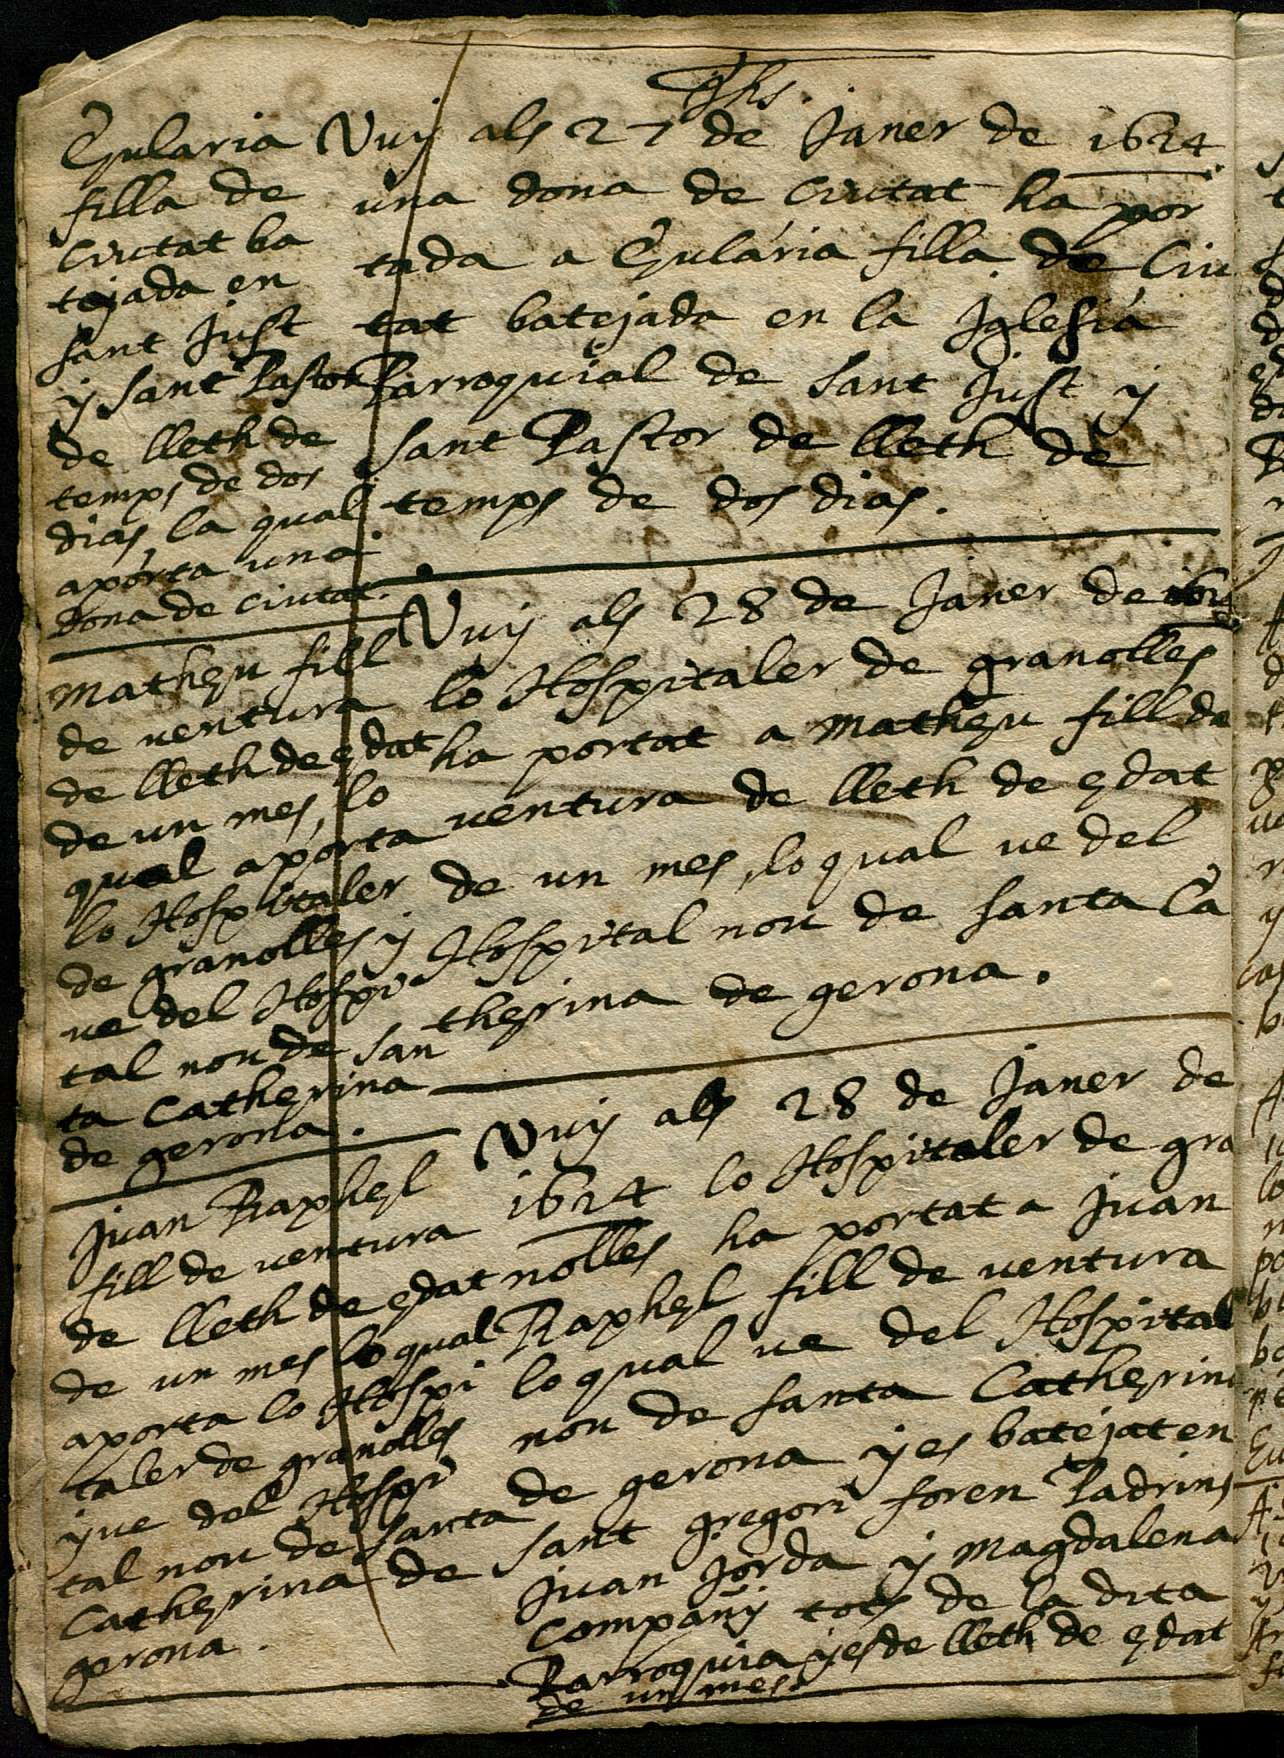 Jhs.
Eularia
filla de
Ciutat ba
tejada en
sant Just
y sant Pastor
de lleth de
temps de dos
dias, la qual
aporta una
dona de ciutat.
Vuy als 27 de Janer de 1624
una dona de Ciutat ha por
tada a Eulária filla de Ciu
tat batejada en la Iglesia
Parroquial de sant Just y
sant Pastor de lleth de
temps de dos dias.
Matheu fill
de ventura
de lleth de edat
de un mes, lo
qual aporta
lo Hospitaler
de granolles y
ve del Hospi
tal nou de san
ta Catherina
de gerona.
Vuy als 28 de Janer de 1624
lo Hospitaler de granolles
ha portat a Matheu fill de
ventura de lleth de edat
de un mes, lo qual ve del
Hospital nou de santa Ca
therina de gerona.
Juan Raphel
fill de ventura
de lleth de edat
de un mes lo qual
aporta lo Hospi
taler de granolles
y ve del Hospi
tal nou de santa
Catherina de
gerona.
Vuy als 28 de Janer de
1624 lo Hospitaler de gra
nolles ha portat a Juan
Raphel fill de ventura
lo qual ve del Hospital
nou de santa Catherina
de gerona y es batejat en
sant gregori foren Padrins
Juan Jorda y Magdalena
Compañy tots de la dita
Parroquia y es de lleth de edat
de un mes.